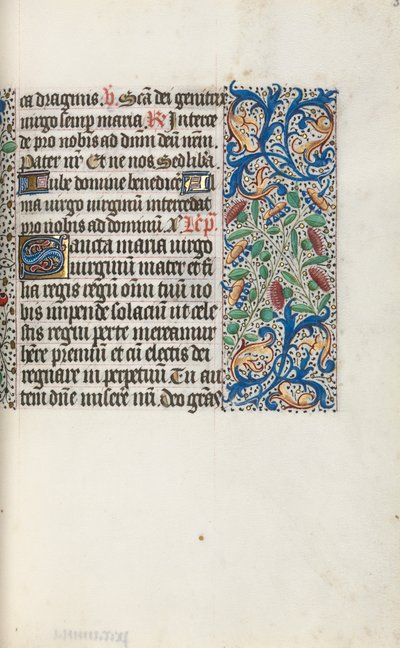 ca dragmis. V. Scā dei genitrix
virgo semp maria. R. Interce
de pro nobis ad dnm deū nrm.
Pater nr̄ Et ne nos Sed liba.
Iube domine benedice Al
ma virgo virginum intercedat
pro nobis ad dominum. R. Lcō p̄.
Sancta maria virgo
virginum mater et fi
lia regis regū omniū tuum no
bis impende solacium ut cele
stis regni per te mereamur
hēre premium et cū electis dei
regnare in perpetuum. Tu au
tem dn̄e misere nr̄i. Deo grās